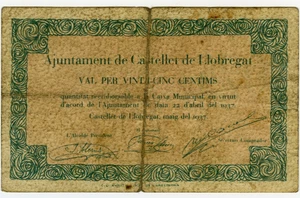 Ajuntament de Castellet de Llobregat
VAL PER VINT-I-CINC CENTIMS
quantitat reembossable a la Caixa Municipal, en virtut
d'acord de l'Ajuntament de data 22 d'abril del 1937.
Castellet de Llobregat, maig del 1937.